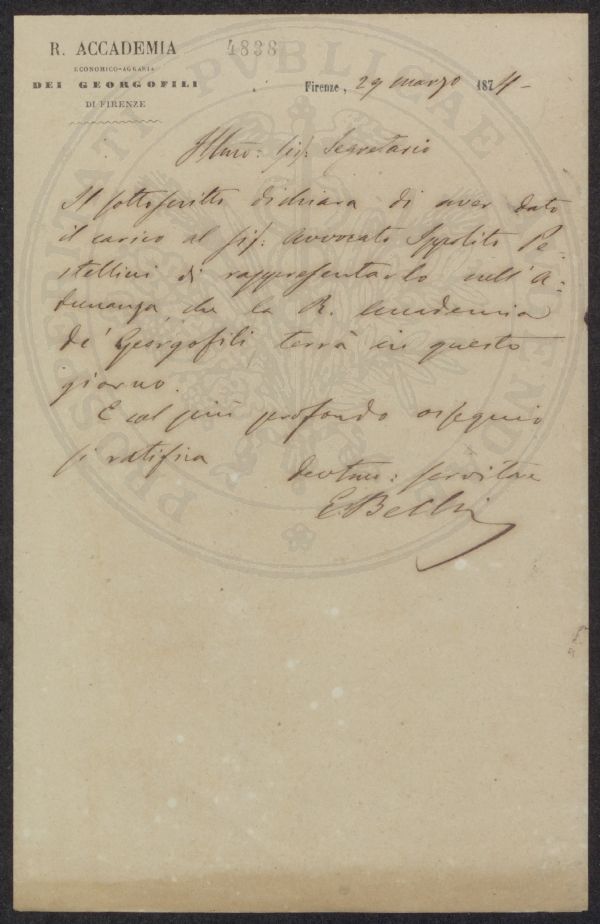 R. ACCADEMIA
ECONOMICO-AGRARIA
DEI GEORGOFILI
DI FIRENZE
4838
Firenze, 29 marzo 1874
Illmo: Sig: Segretario
Il sottoscritto dichiara di aver dato
il carico al Sig: Avvocato Ippolito Pe-
stellini di rappresentarlo nell'A-
dunanza, che la R. Accademia
de' Georgofili terrà in questo
giorno.
E col più profondo ossequio
si ratifica
devotmo: servitore
E. Bechi
PROSPERITATI PUBLICAE AUGENDAE